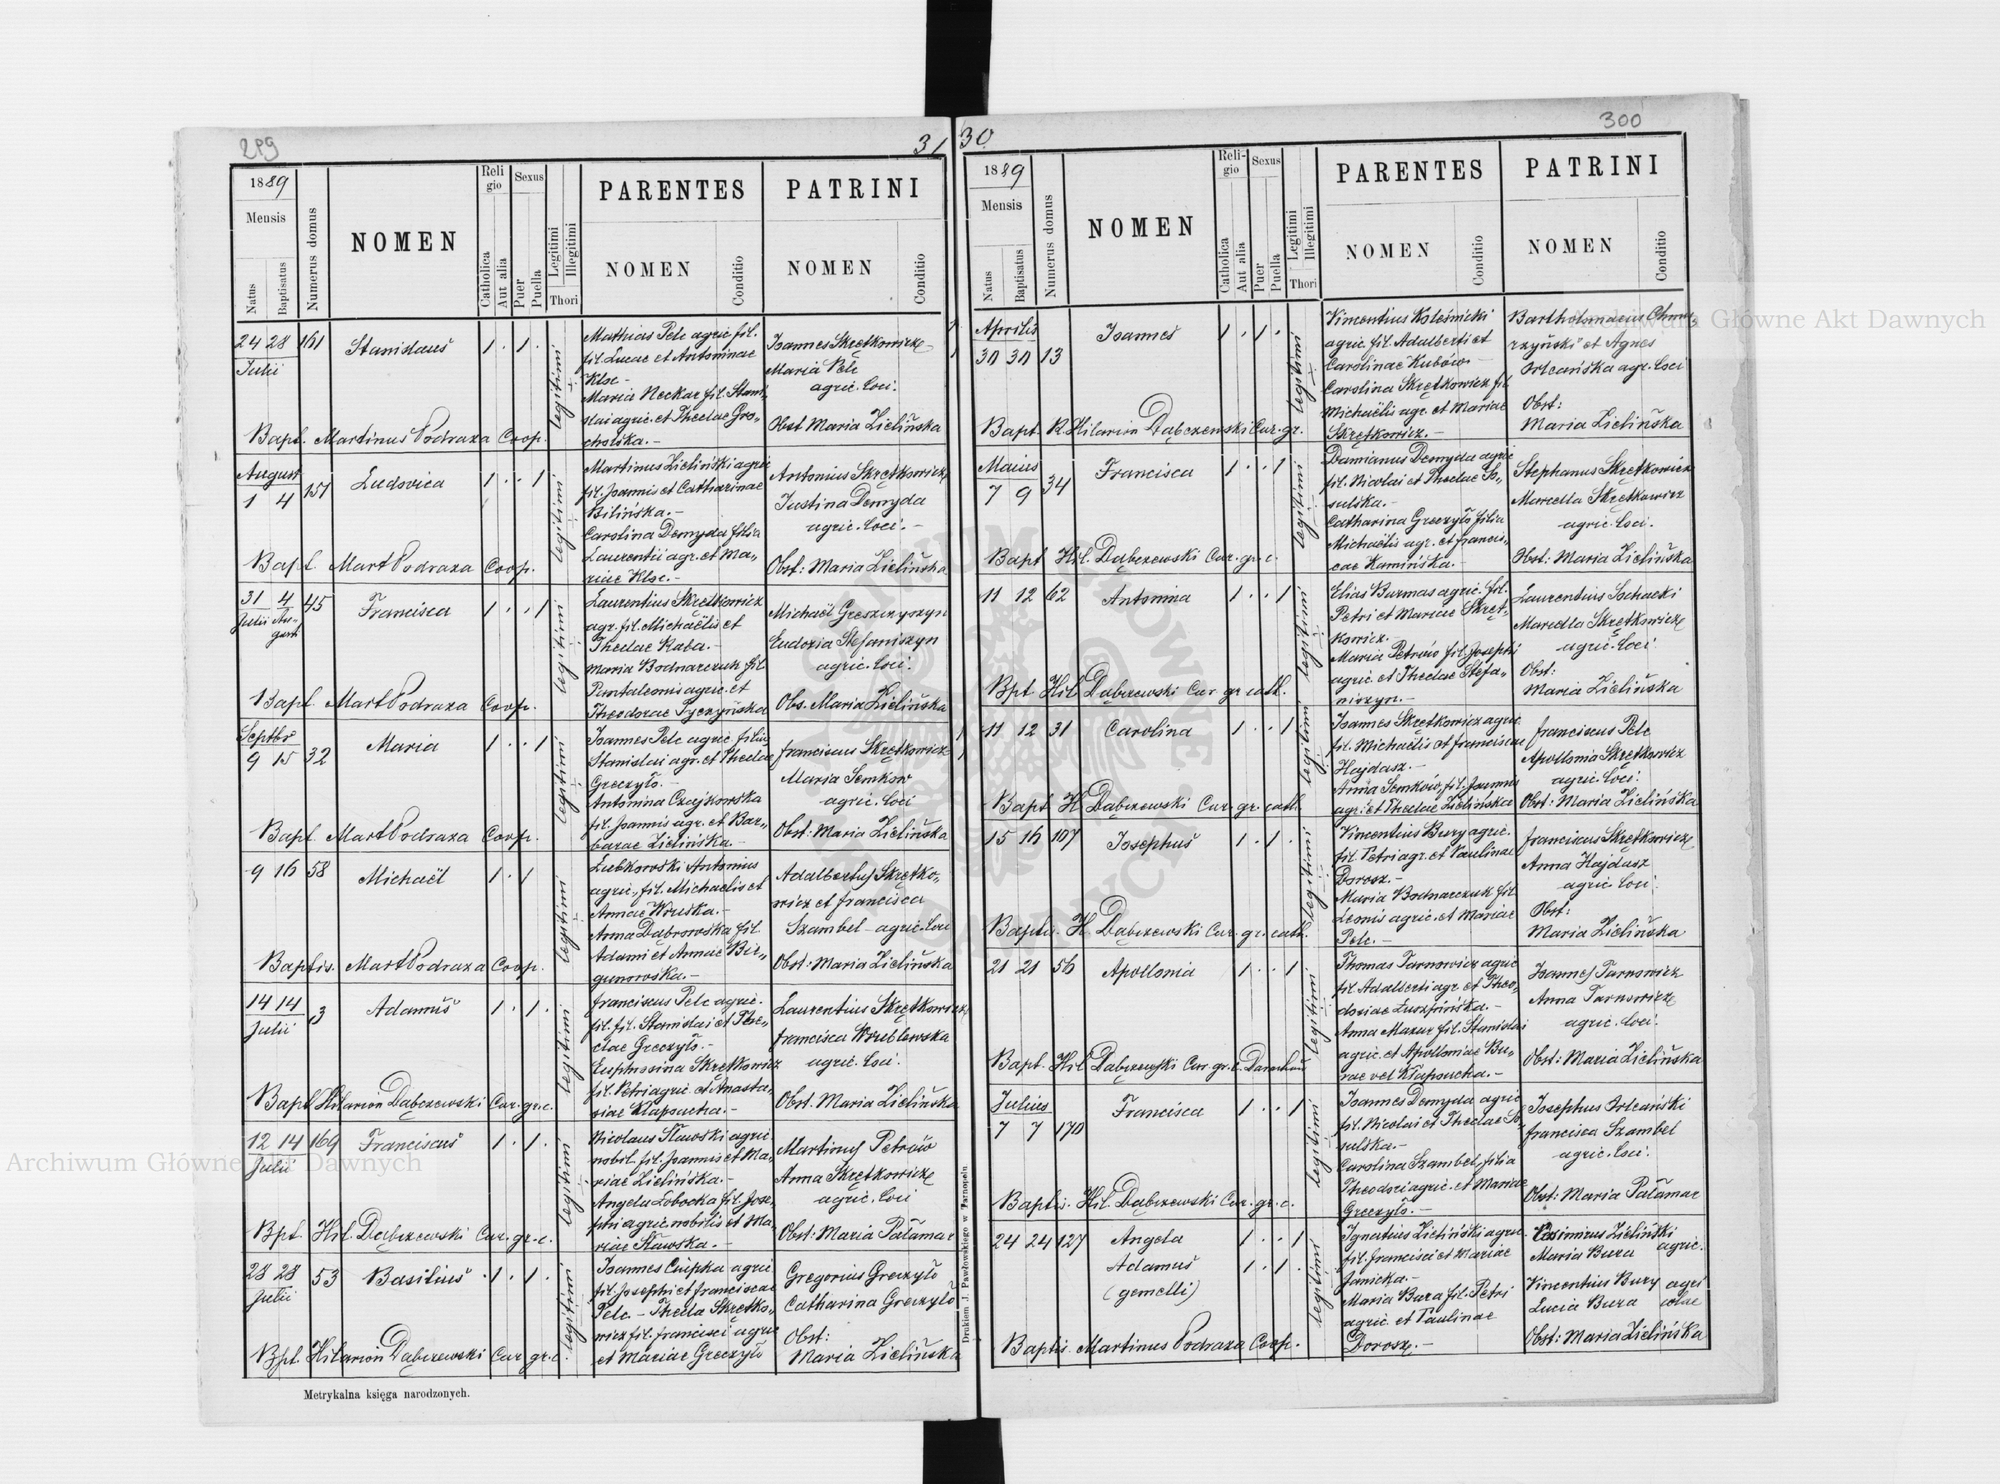 299
31
1889
Mensis
Natus
Baptisatus
Numerus domus
NOMEN
Religio
Catholica
Aut alia
Sexus
Puer
Puella
Legitimi
Illegitimi
Thori
PARENTES
NOMEN
Conditio
PATRINI
NOMEN
Conditio
24 28 161 Stanislaus 1 . 1 .
Julii
legitimi
Mathias Pelc agric. fil.
fil. Lucae et Antoninae
Klsc -
Maria Neckar fil. Stani-
slai agric. et Theclae Gro-
cholska. -
Joannes Skrętkowicz -
Maria Pelc
agric. loci.
Obst Maria Zielińska
Bapt. Martinus Podraza Coop.
August
1 4 157 Ludovica 1 . . 1
legitimi
Martinus Zieliński agric
fil. Joannis et Catharinae
Bilińska. -
Carolina Demyda filia
Laurentii agr. et Ma-
riae Klsc. -
Antonius Skrętkowicz
Justina Demyda
agric. loci. -
Obst: Maria Zielińska
Bapt. Mart Podraza Coop.
31 4 45 Francisca 1 . . 1
Julii Au-
gusti
legitimi
Laurentius Skrętkowicz
agr. fil. Michaëlis et
Theclae Kaba. -
Maria Bodnarczuk fil
Pantaleonis agric. et
Theodorae Tyczyńska
Michaël Greszczyszyn
Eudoxia Stefaniszyn
agric. loci.
Obs. Maria Zielińska
Bapt. Mart Podraza Coop.
Septbr
9 15 32 Maria 1 . . 1
legitimi
Joannes Pelc agric. filius
Stanislai agr. et Theclae
Greczyło.
Antonina Czajkowska
fil. Joannis agr. et Bar-
barae Zielińska. -
Franciscus Skrętkowicz
Maria Semkow
agric. loci
Obst: Maria Zielińska
Bapt Mart Podraza Coop.
9 16 58 Michaël 1 . 1
legitimi
Lubkowski Antonius
agric., fil. Michaelis et
Annae Wruska. -
Anna Dabrowska fil.
Adami et Annae Bie-
gunowska. -
Adalbertus Skrętko-
wicz et Francisca
Szambel - agric. loci
Obst: Maria Zielińska
Baptis. Mart Podraza Coop.
14 14 13 Adamus 1 . 1 .
Julii
legitimi
Franciscus Pelc agric.
fil. fil. Stanislai et The-
clae Greczyło. -
Euphrosina Skrętkowicz
fil. Petri agric. et Anasta-
siae Kłapoucha. -
Laurentius Skrętkowicz
Francisca Wrublewska
agric. loci.
Obst. Maria Zielińska
Bapt Hilarion Dąbczewski Cur. gr. c.
12 14 169 Franciscus 1 . 1 .
Julii
legitimi
Nicolaus Sławski agric.
nobil. fil. Joannis et Ma-
riae Zielińska. -
Angela Łobocka fil. Jose-
phi agric. nobilis et Ma-
riae Sławska. -
Martinus Petrów
Anna Skrętkowicz
agric. loci
Obst: Maria Pałamar
Bpt. Hil. Dąbczewski Cur. gr. c.
28 28 53 Basilius . 1 . 1 .
Julii
legitimi
Joannes Czupka agric
fil. Josephi et Franciscae
Pelc. - Thecla Skrętko-
wicz fil. Francisci agric
et Mariae Greczyło
Gregorius Greczyło
Catharina Greczyło
Obst:
Maria Zielińska
Bpt. Hilarion Dąbczewski Cur. gr. c.
Metrykalna księga narodzonych.
Drukiem J. Pawłowskiego w Tarnopolu
30
300
1889
Mensis
Natus
Baptisatus
Numerus domus
NOMEN
Religio
Catholica
Aut alia
Sexus
Puer
Puella
Legitimi
Illegitimi
Thori
PARENTES
NOMEN
Conditio
PATRINI
NOMEN
Conditio
Aprilis
30 30 13 Joannes 1 . 1 .
legitimi
Vincentius Koleśnicki
agric. fil. Adalberti et
Carolinae Kubów -
Carolina Skrętkowicz fil
Michaëlis agr. et Mariae
Skrętkowicz. -
Bartholomaeus
et Agnes
Orleańska agr. loci
Obst:
Maria Zielińska
Bapt R Hilarion Dąbczewski Cur. gr.
Maius
7 9 34 Francisca 1 . . 1
legitimi
Damianus Demyda agric
fil. Nicolai et Theclae So-
sulska. -
Catharina Greczyło filia
Michaëlis agr. et Francis-
cae Kamińska. -
Stephanus Skrętkowicz
Marcella Skrętkowicz
agric. loci.
Obst: Maria Zielińska
Bapt Hil. Dąbczewski Cur. gr. c.
11 12 62 Antonina 1 . . 1
legitimi
Elias Burmas agric. fil.
Petri et Mariae Skręt-
kowicz. -
Maria Petrów fil. Josephi
agric et Theclae Stefa-
niszyn. -
Laurentius Sochacki
Marcella Skrętkowicz
agric. loci
Obst:
Maria Zielińska
Bpt Hil Dąbczewski Cur gr cath.
11 12 31 Carolina 1 . . 1
legitimi
Joannes Skrętkowicz agric
fil. Michaëlis et Franciscae
Hajdasz. -
Anna Semków, fil. Joannis
agr. et Theclae Zielińska
Franciscus Pelc
Apollonia Skrętkowicz
agric. loci.
Obst: Maria Zielińska
Bapt H Dąbczewski Cur. gr. cath.
15 16 107 Josephus 1 . 1 .
legitimi
Vincentius Bury agric.
fil. Petri agr. et Paulinae
Dorosz. -
Maria Bodnarczuk fil.
Leonis agric. et Mariae
Pelc. -
Franciscus Skrętkowicz
Anna Hajdasz
agric. loci.
Obst:
Maria Zielińska
Baptis. H. Dąbczewski Cur. gr. cath.
21 21 56 Apollonia 1 . . 1
legitimi
Thomas Tarnowicz agric
fil. Adalberti agr. et Theo-
dosiae
Anna Mazur fil. Stanislai
agric. et Apolloniae Bu-
rae vel Kłapoucha. -
Joannes Tarnowicz
Anna Tarnowicz
agric. loci.
Obst: Maria Zielińska
Bapt. Hil Dąbczewski Cur. gr. c.
Julius
7 7 170 Francisca 1 . . 1
legitimi
Joannes Demyda agric
fil. Nicolai et Theclae So-
sulska. -
Carolina Szambel, filia
Theodori agric. et Mariae
Greczyło. -
Josephus Orleański
Francisca Szambel
agric. loci.
Obst: Maria Pałamar
Baptis. Hil. Dąbczewski Cur. gr. c.
24 24 127 Angela 1 . . 1
Adamus 1 . 1 .
(gemelli)
legitimi
Ignatius Zieliński agric.
fil. Francisci et Mariae
Janicka. -
Maria Bura fil. Petri
agric. et Paulinae
Dorosz. -
Casimirus Zieliński
Maria Bura agric.
Vincentius Bury agri
Lucia Bura colae
Obst: Maria Zielińska
Baptis. Martinus Podraza Coop.
Archiwum Główne Akt Dawnych
Archiwum Główne Akt Dawnych
ARCHIWUM GŁÓWNE AKT DAWNYCH